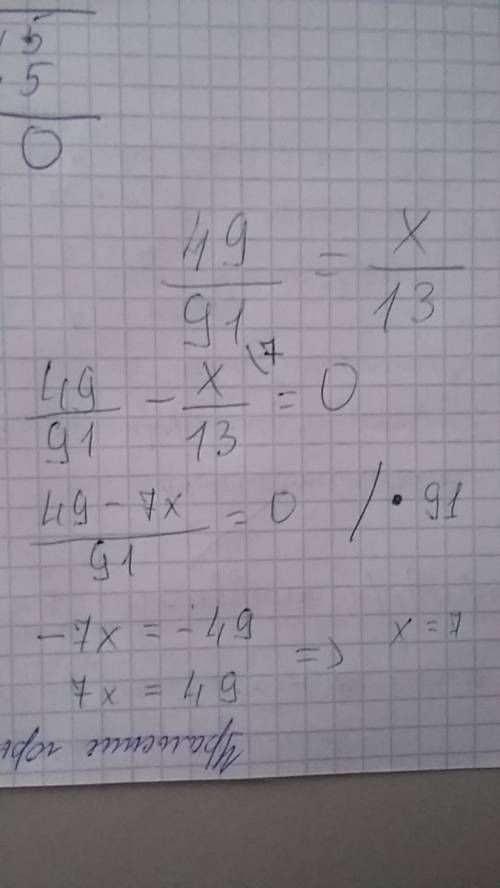 5
5
0
49/91 = x/13
49/91 - x/13 \7 = 0
(49 - 7x)/91 = 0 / • 91
-7x = -49
7x = 49 => x = 7